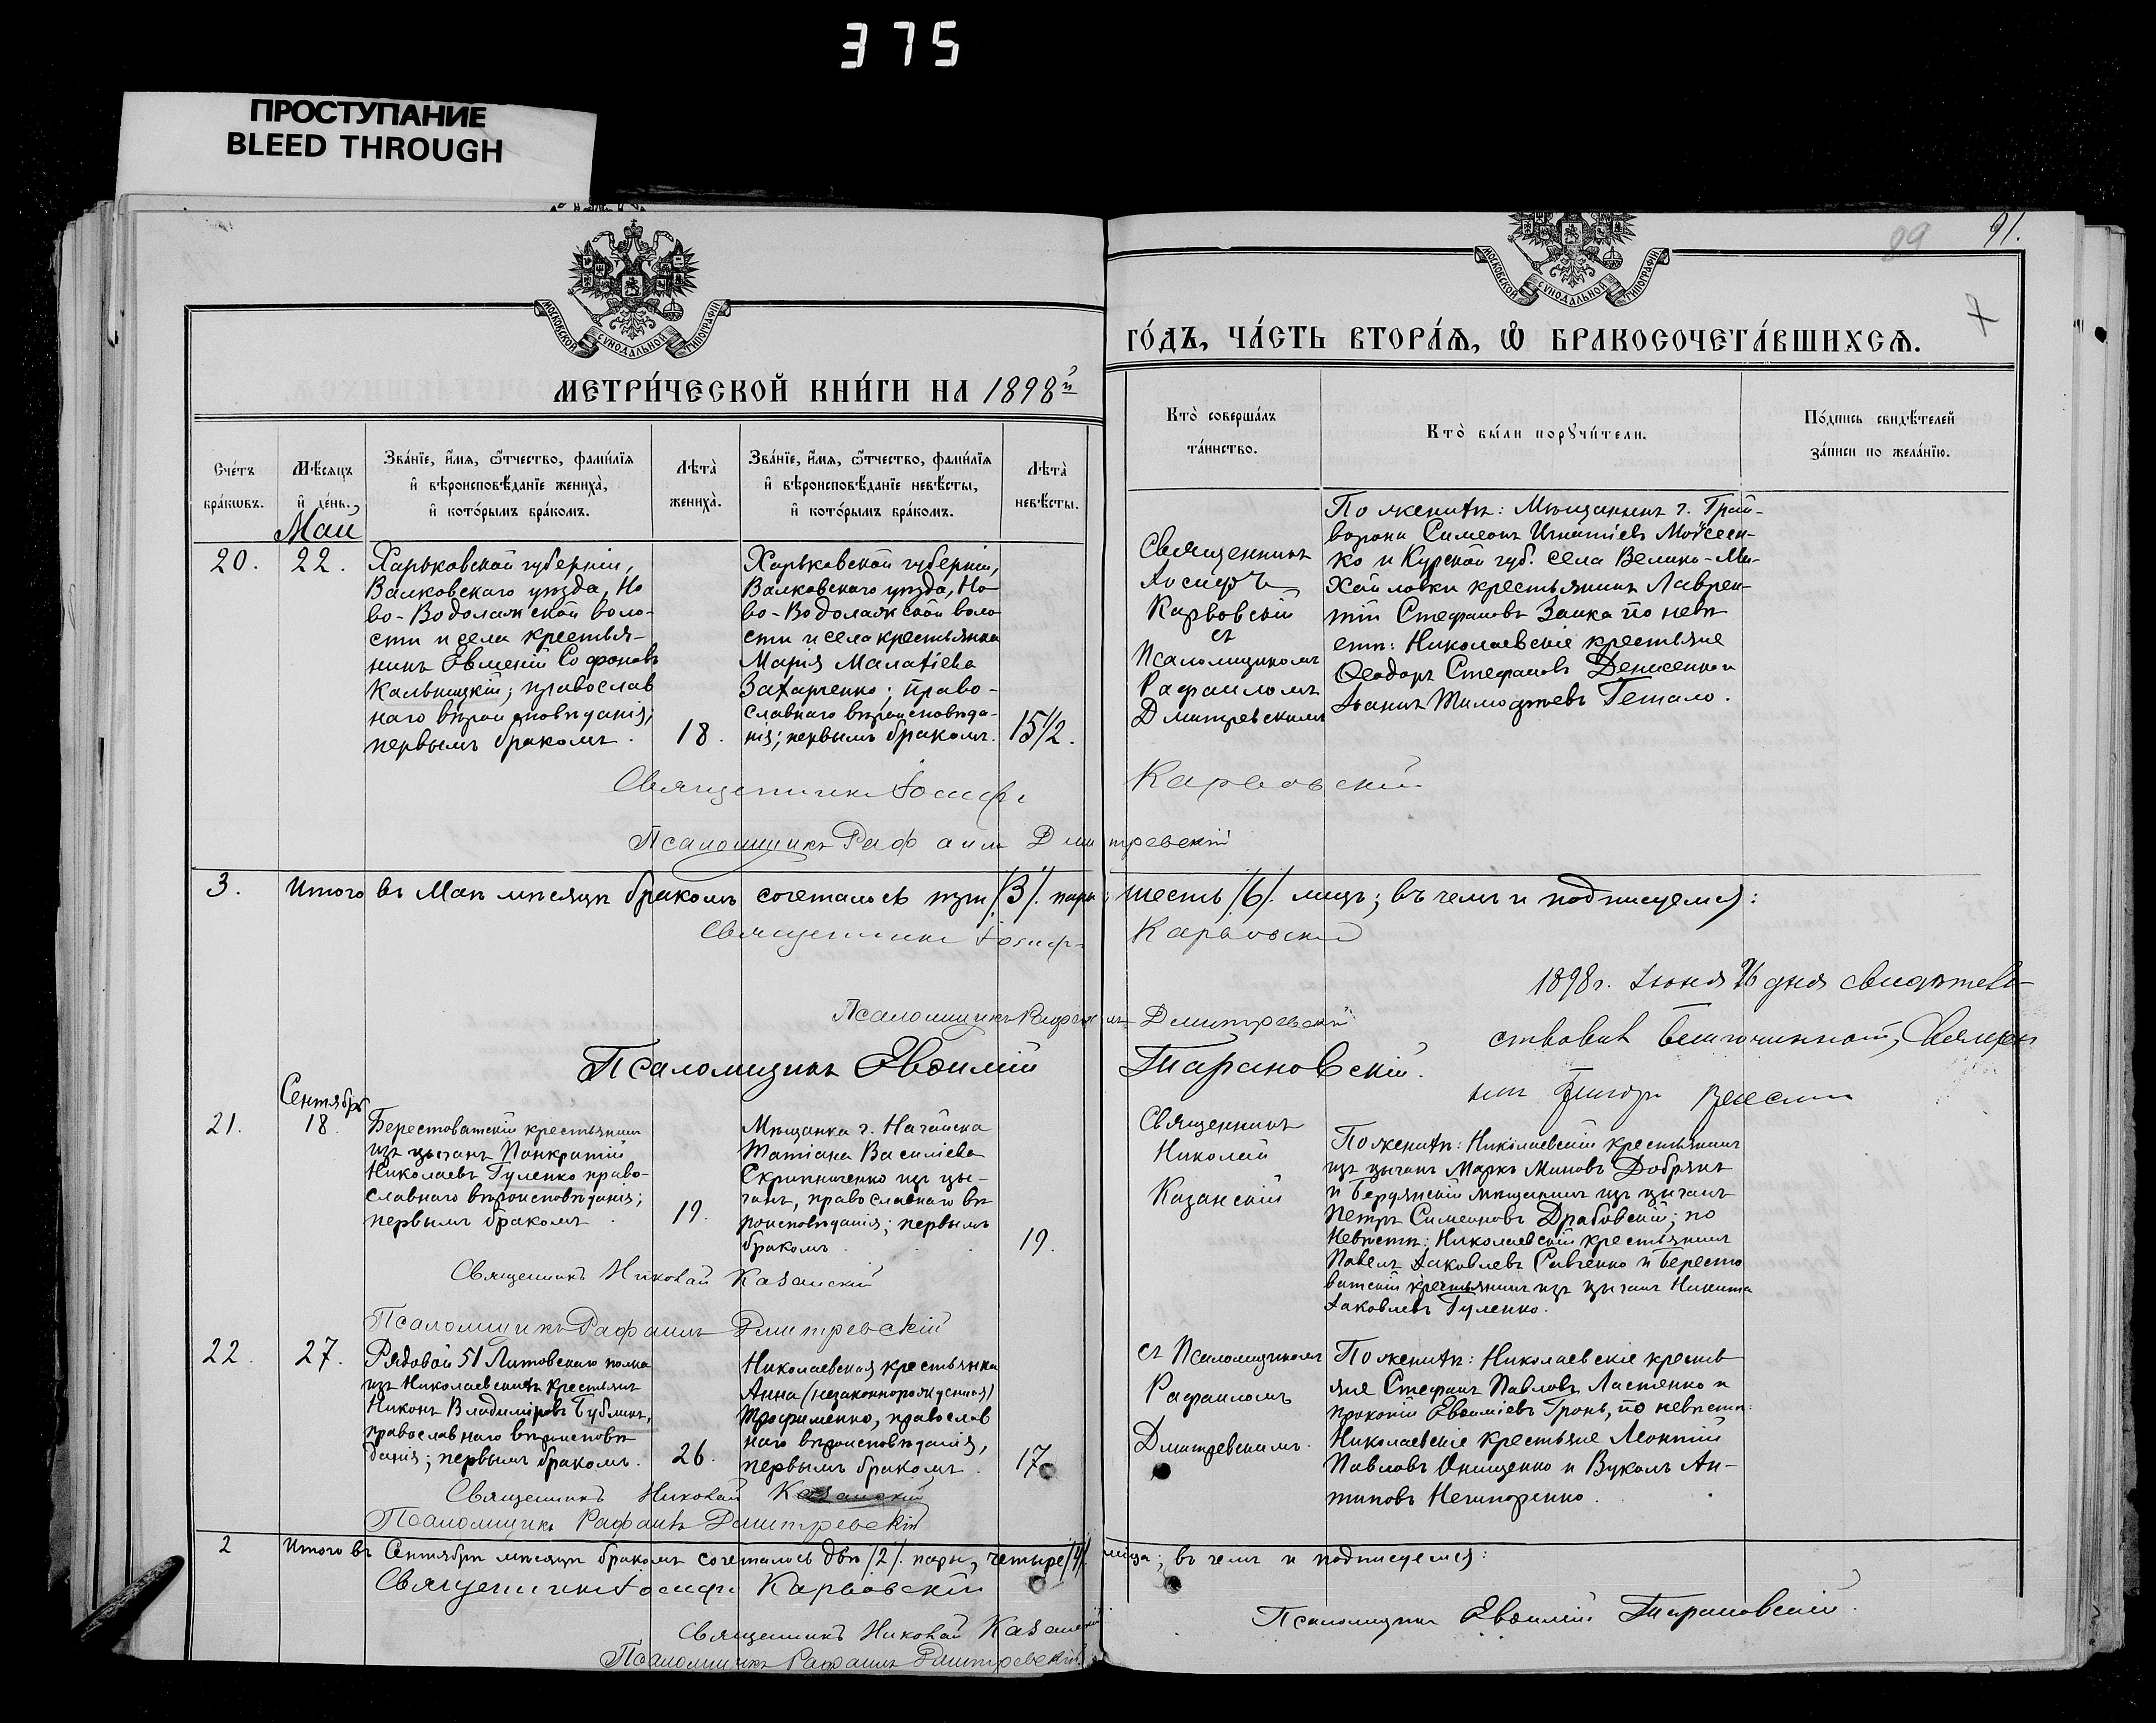 375
ПРОСТУПАНИЕ
BLEED THROUGH
91.
89
МОСКОВСКОЙ СѴНОДАЛЬНОЙ ТИПОГРАФІИ
МОСКОВСКОЙ СѴНОДАЛЬНОЙ ТИПОГРАФІИ
МЕТРИ́ЧЕСКОЙ КНИ́ГИ НА 1898й
ГО́ДЪ, ЧА́СТЬ ВТОРА́Ѧ, Ѡ҆ БРАКОСОЧЕТА́ВШИХСѦ.
Сче́тъ
бра́кѡвъ.
Мѣ́сѧцъ
и҆ де́нь.
Зва́нїе, и҆́мѧ, ѻ҆́тчество, фами́лїѧ
и҆ вѣроисповѣ́данїе жениха̀,
и҆ кото́рымъ бра́комъ.
Лѣ́та
жениха̀.
Зва́нїе, и҆́мѧ, ѻ҆́тчество, фами́лїѧ
и҆ вѣроисповѣ́данїе невѣ́сты,
и҆ кото́рымъ бра́комъ.
Лѣ́та
невѣ́сты.
Кто̀ соверша́лъ
та́инство.
Кто̀ бы́ли порꙋчи́тели.
По́дпись свидѣ́телей
за́писи по жела́нїю.
Май
20.
22.
Харьковской губерніи,
Валковскаго уѣзда, Но
во-Водолажской воло-
сти и села крестья-
нинъ Евменій Софоновъ
Кальницкій; православ
наго вѣроисповѣданія;
первымъ бракомъ.
18.
Харьковской губерніи,
Валковскаго уѣзда, Но
во-Водолажской воло
сти и села крестьянка
Марія Малахіева
Захарченко; право-
славнаго вѣроисповѣда-
нія; первымъ бракомъ.
15½.
Священникъ
Іосифъ
Карвовскій
съ
Псаломщикомъ
Рафаиломъ
Дмитревскимъ
По женихѣ: Мѣщанинъ г. Грай-
ворона Симеонъ Игнатіевъ Мойсеен-
ко и Курской губ. села Велико-Ми-
хайловки крестьянинъ Лаврен-
тій Стефановъ Заика по невѣ
стѣ: Николаевскіе крестьяне
Ѳеодоръ Стефановъ Денисенко и
Іоаннъ Тимофѣевъ Гетало.
Священникъ Іосифъ Карвовскій
Псаломщикъ Рафаилъ Дмитревскій
3. Итого въ Маѣ мѣсяцѣ бракомъ сочеталось три /3/. пары; шесть /6/. лицъ; въ чемъ и подписуемся:
Священникъ Іосифъ Карвовскій
Псаломщикъ Рафаилъ Дмитревскій
Псаломщикъ Евѳимій Тарановскій.
1898г. Іюня 26 дня свидѣтель-
ствовалъ Благочинный, Священ
никъ Григорій
Сентябрь
21.
18.
Берестоватскій крестьянинъ
изъ цыганъ Панкратій
Николаевъ Гуленко право-
славнаго вѣроисповѣданія;
первымъ бракомъ.
19.
Мѣщанка г. Ногайска
Татіана Василіева
Скрипниченко изъ цы-
ганъ, православнаго вѣ
роисповѣданія; первымъ
бракомъ.
19.
Священникъ
Николай
Казанскій
По женихѣ: Николаевскій крестьянинъ
изъ цыганъ Маркъ Миновъ Добрянъ
и Бердянскій мѣщанинъ изъ цыганъ
Петръ Симеоновъ Драбовскій; по
невѣстѣ: Николаевскій крестьянинъ
Павелъ Іаковлевъ Савченко и Бересто
ватскій крестьянинъ изъ цыганъ Никита
Іаковлевъ Гуленко.
Священникъ Николай Казанскій
Псаломщикъ Рафаилъ Дмитревскій
22.
27.
Рядовой 51 Литовскаго полка
изъ Николаевскихъ крестьянъ
Никонъ Владиміровъ Бубликъ,
православнаго вѣроисповѣ
данія; первымъ бракомъ.
26.
Николаевская крестьянка
Анна (незаконнорожденная)
Трофименко, православ
наго вѣроисповѣданія,
первымъ бракомъ.
17.
съ Псаломщикомъ
Рафаиломъ
Дмитревскимъ.
По женихѣ: Николаевскіе кресть
яне Стефанъ Павловъ Ластенко и
Прокопій Евѳиміевъ Гронь, по невѣстѣ:
Николаевскіе крестьяне Леонтій
Павловъ Онищенко и Вуколъ Ан-
типовъ Нечипоренко.
Священникъ Николай Казанскій
Псаломщикъ Рафаилъ Дмитревскій
2 Итого въ Сентябрѣ мѣсяцѣ бракомъ сочеталось двѣ /2/. пары, четыре /4/. лица; въ чемъ и подписуемся:
Священникъ Іосифъ Карвовскій
Священникъ Николай Казанскій
Псаломщикъ Рафаилъ Дмитревскій
Псаломщикъ Евѳимій Тарановскій.